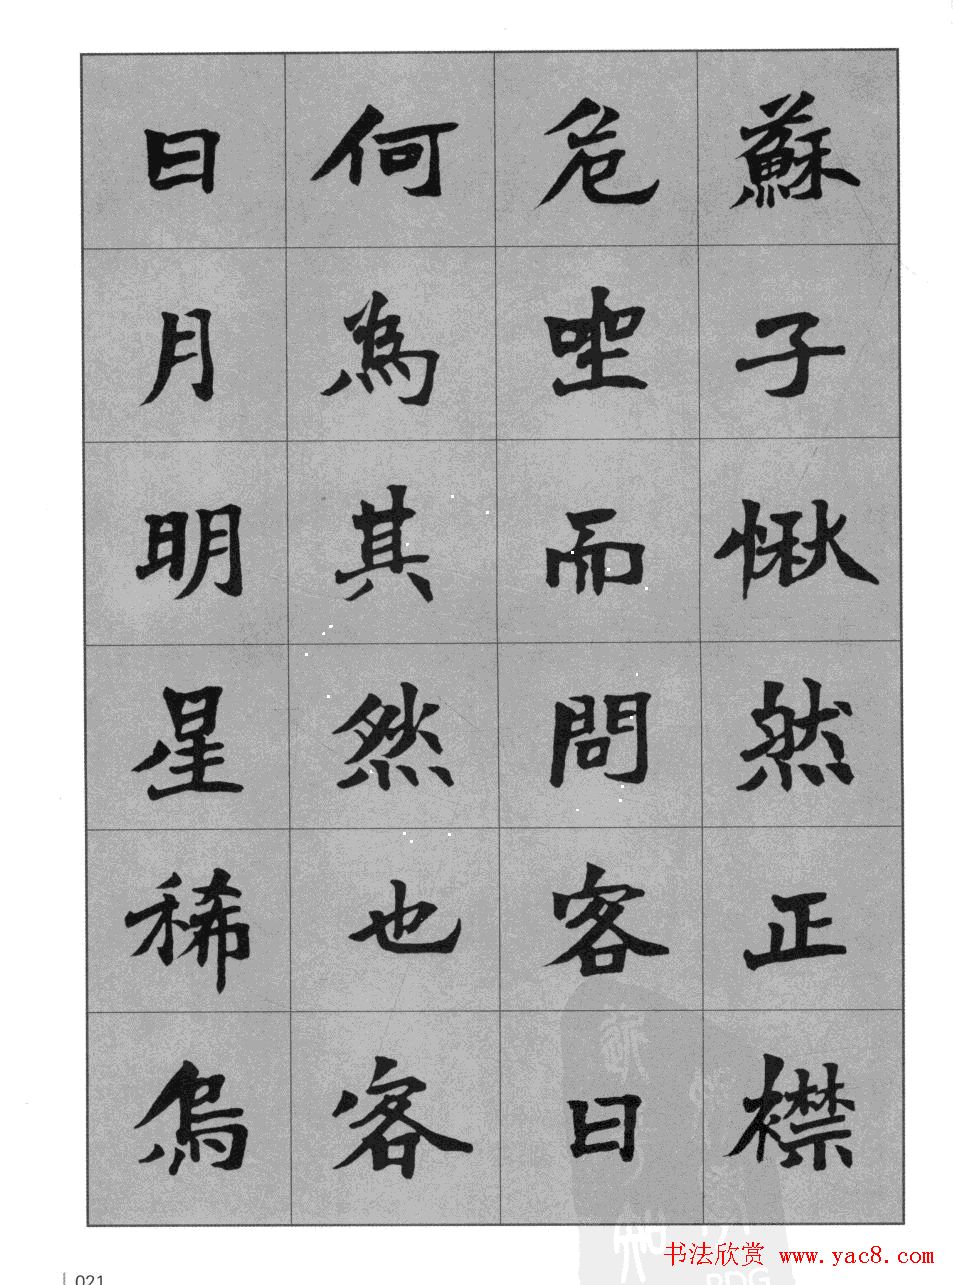 蘇子愀然正襟
危坐而問客曰
何爲其然也客
曰月明星稀烏
021
书法欣赏 www.yac8.com